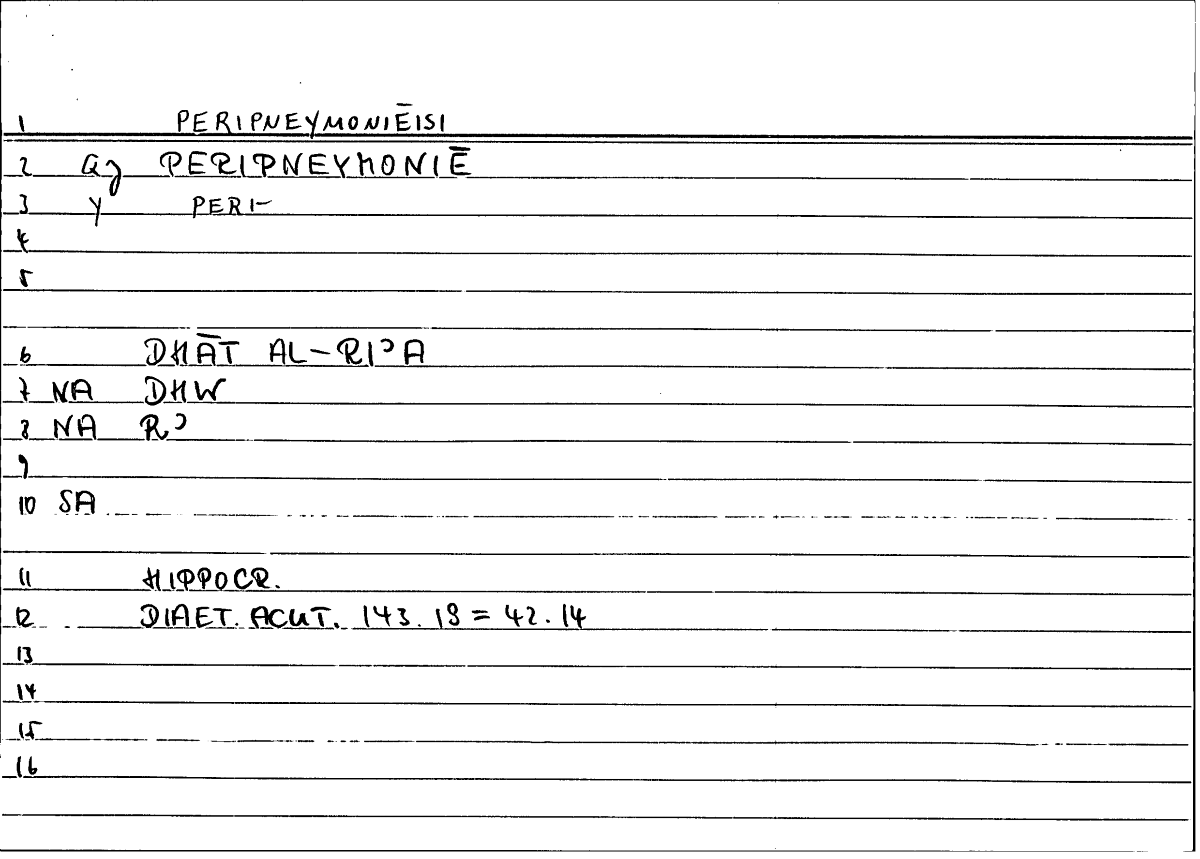 1 PERIPNEYMONIĒISI
2 Qg PERIPNEYMONIĒ
3 Y PERI-
4
5
6 DHĀT AL-RIɔA
7 NA DHW
8 NA Rɔ
9
10 SA
11 HIPPOCR.
12 DIAET. ACUT. 143.18 = 42.14
13
14
15
16